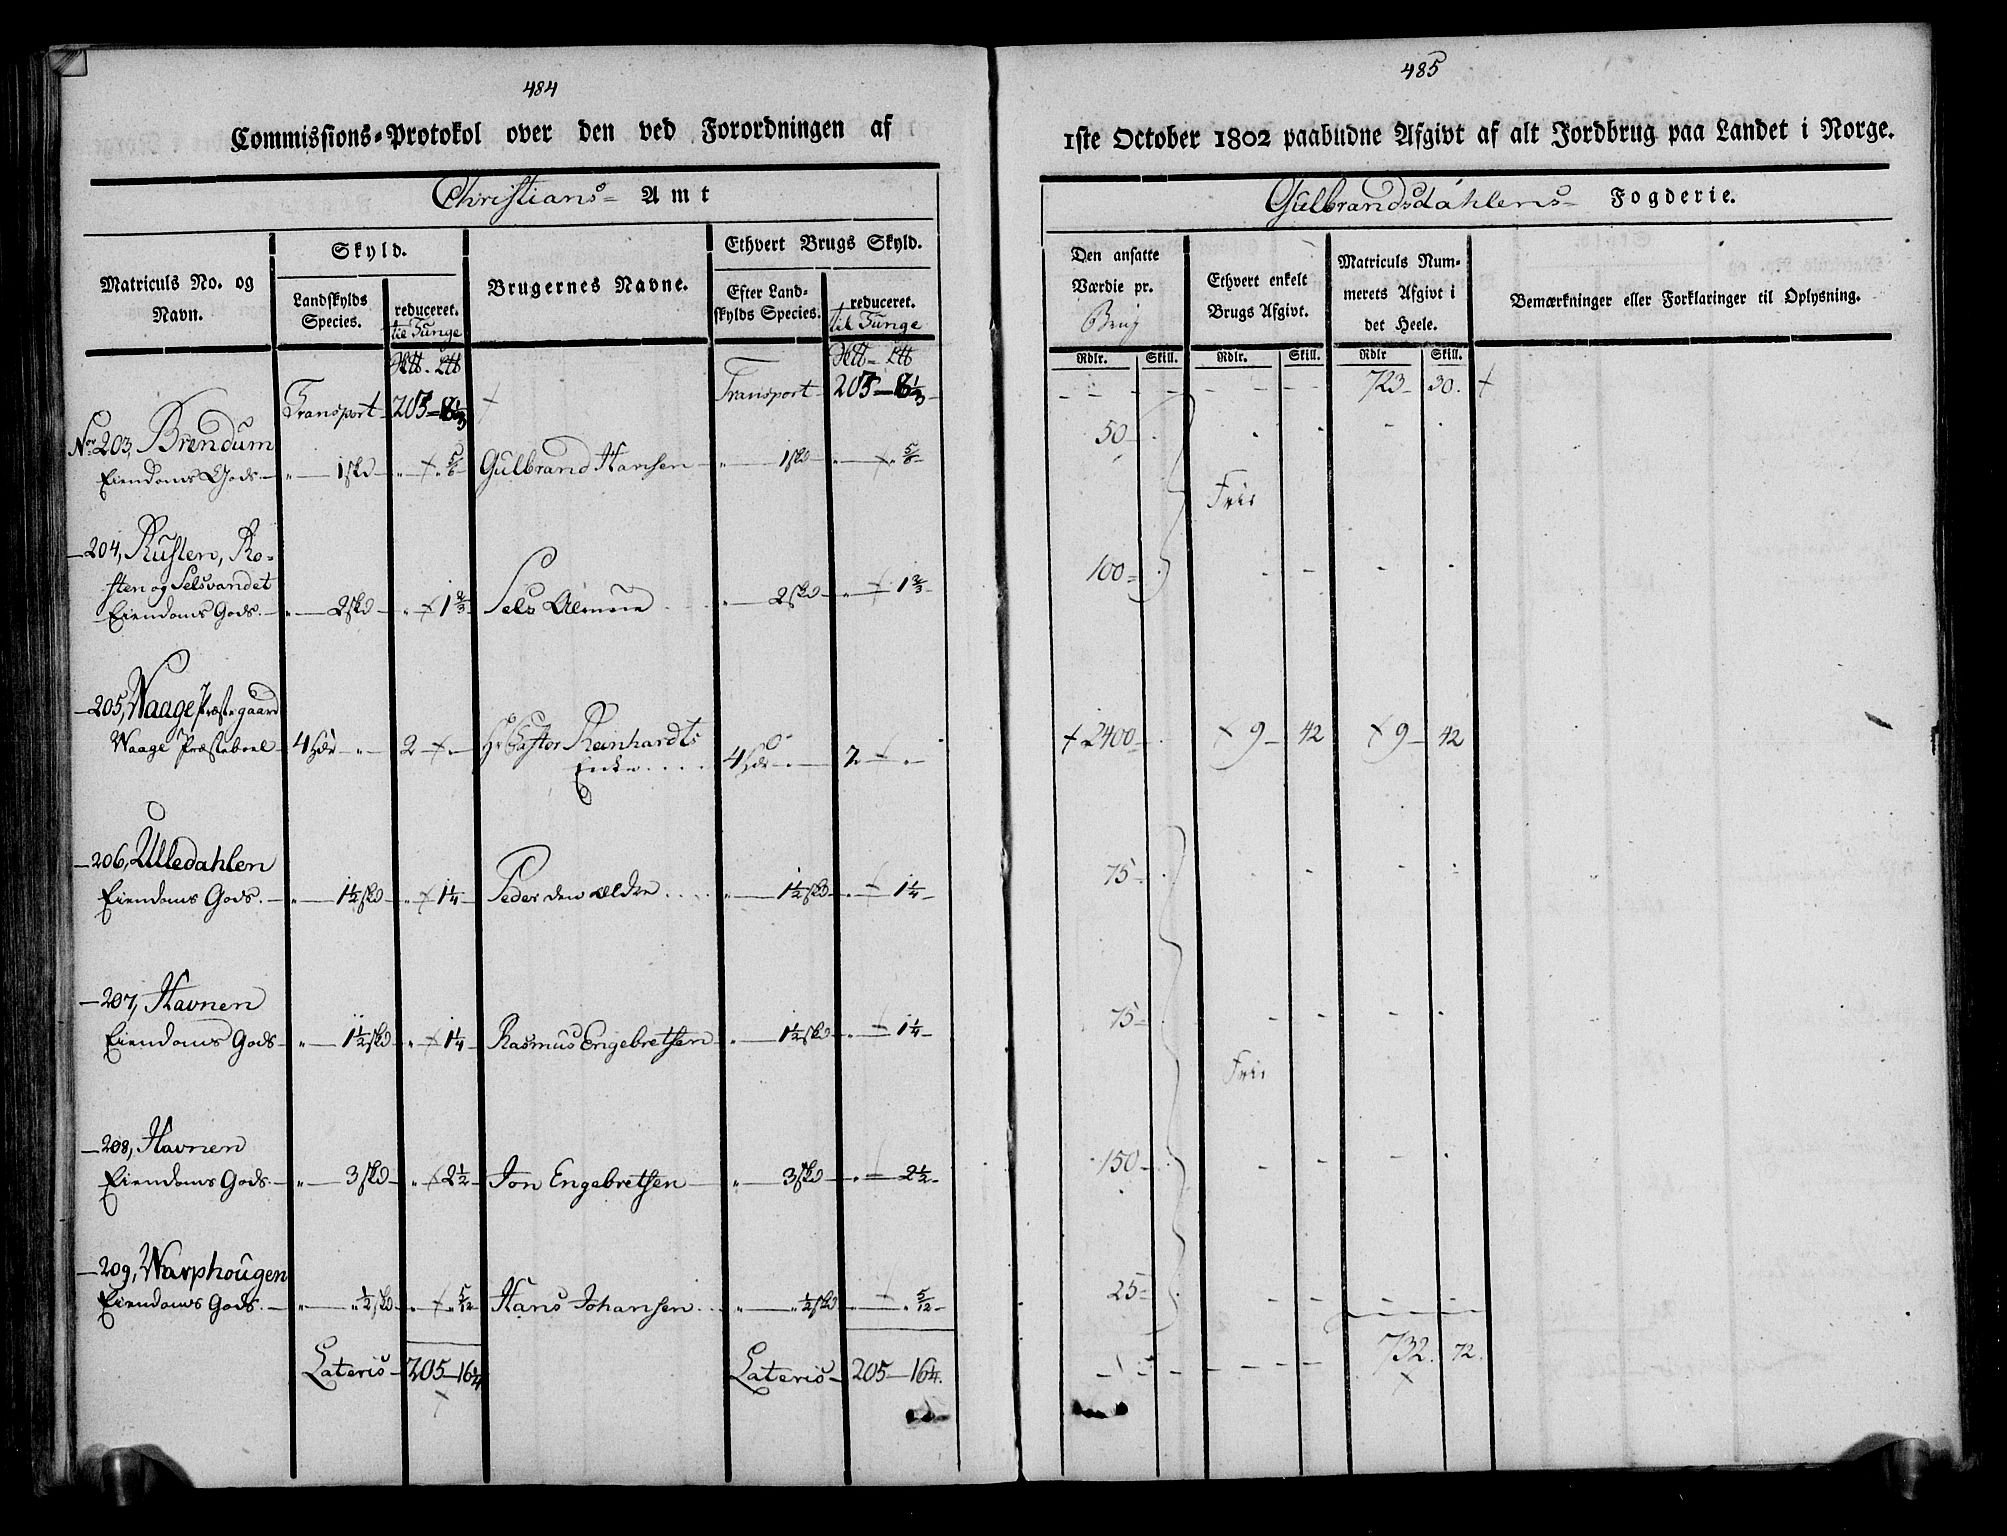 484
Commissions-Protokol over den ved Forordningen af
Christians- Amt
Matriculs No. og Navn.
Skyld.
Landskylds Species.
reduceret. til Tunge
Brugernes Navne.
Ethvert Brugs Skyld.
Efter Landskylds Species.
reduceret. til Tunge
Transport - 203 - Transport 203 -
No. 203, Brendum
Eiendoms Gods - " - 1 skd - " - " 5/6 Gulbrand Hansen - " - 1 skd - " - " 5/6
- 204, Rusten, Ro-
sten og Selsvandet
Eiendoms Gods. - " - 2 skd - " - 1 2/3 Sels Almue " - 2 skd - " - 1 2/3
- 205, Waage Præstegaard
Waage Præsteboel - 4 Hdr - " - 2 - " - Hr Pastor Reinhardts
Enke .... 4 Hdr - " - 2 - " -
- 206, Ulledahlen
Eiendoms Gods. - " - 1 1/2 skd - " - 1 1/4 - Peder den ældre .... " - 1 1/2 skd - " - 1 1/4 -
- 207, Havnen
Eiendoms Gods - " - 1 1/2 skd - " - 1 1/4 - Rasmus Engebretsen - " - 1 1/2 skd - " - 1 1/4 -
- 208, Havnen
Eiendoms Gods. - " - 3 skd - " - 2 1/2 - Jon Engebretsen - " - 3 skd - " - 2 1/2 -
- 209, Warphougen
Eiendoms Gods. - " - " 1/2 skd - " - " 5/12 Hans Johansen ... " - " 1/2 skd - " - " 5/12 -
Lateris - 205 - 16 1/4 Lateris - 205 - 16 1/4.
485
1ste October 1802 paabudne Afgivt af alt Jordbrug paa Landet i Norge.
Gulbrandsdahlens- Fogderie.
Den ansatte Værdie pr. Brug
Ethvert enkelt Brugs Afgivt.
Matriculs Nummerets Afgivt i det Heele.
Bemærkninger eller Forklaringer til Oplysning.
Rdlr. Skill. Rdlr. Skill. Rdlr Skill.
723 - 30.
50 -
Frie
100 -
2400 - 9 - 42 9 - 42
75 -
75 -
Frie
150 -
25 -
732. 72.